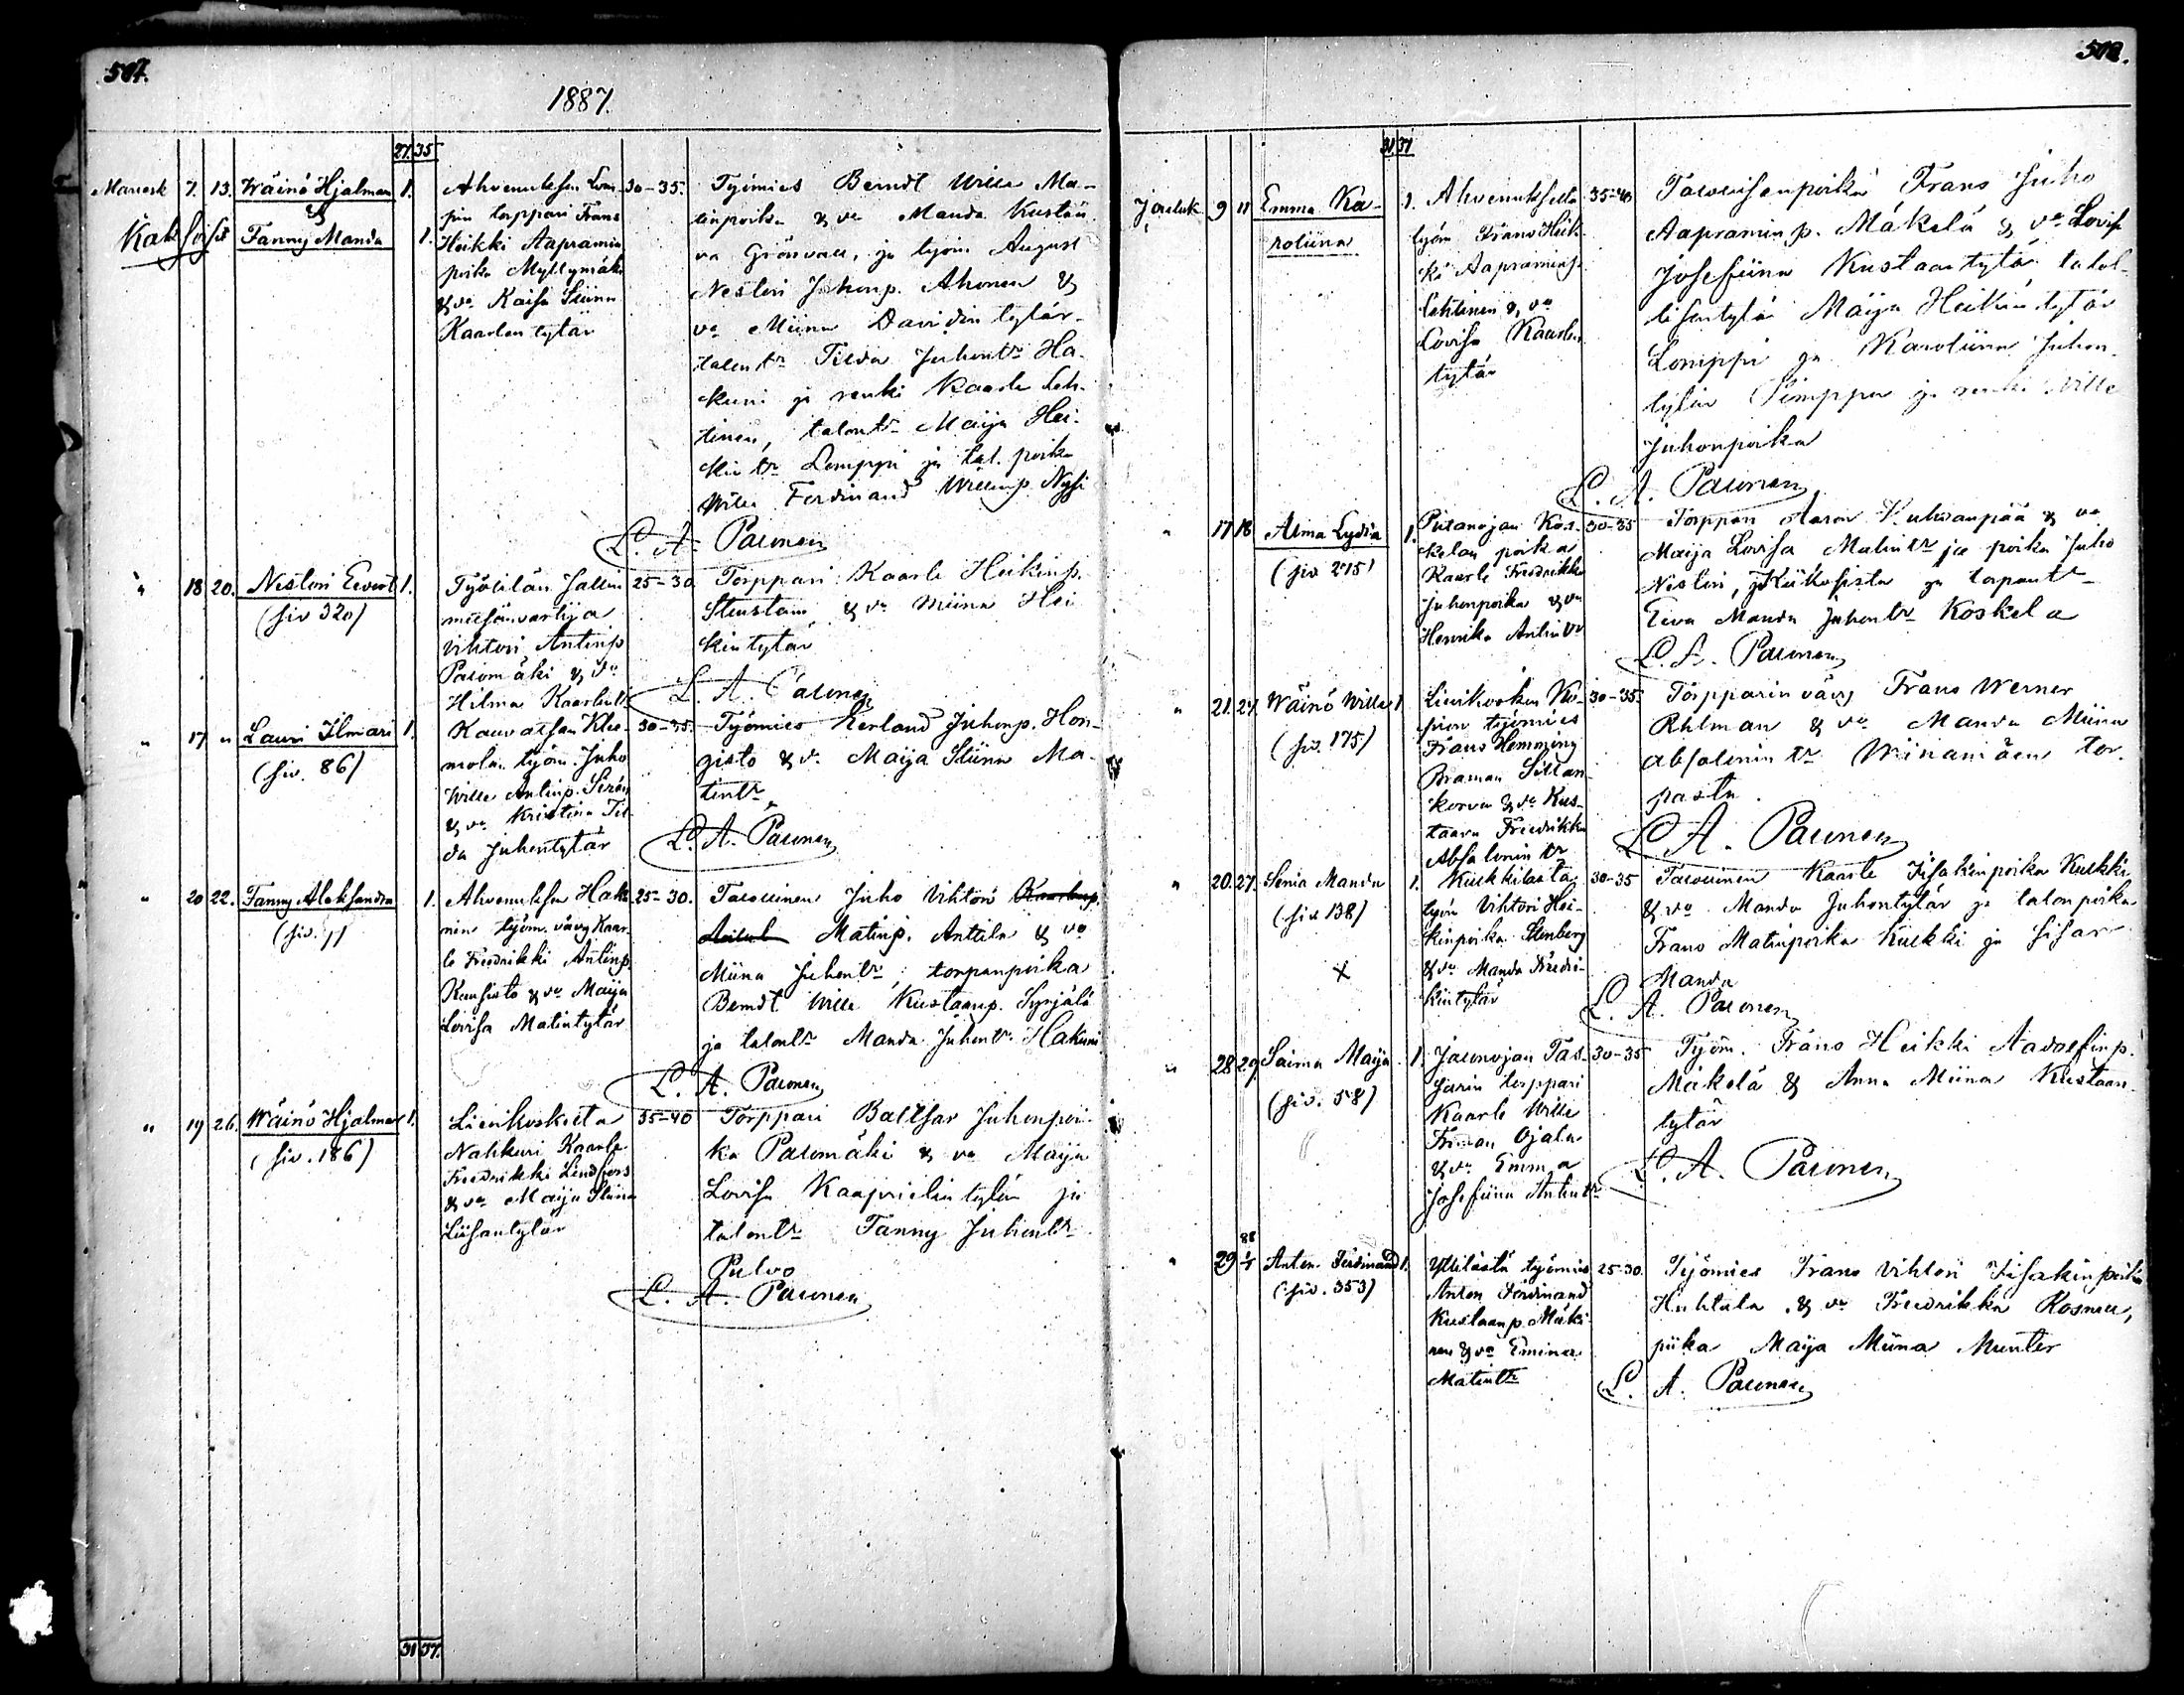 507.
1887.
27. 35
Marrask 7. 13. Wäinö Hjalmar 1.
&
Kaksoiset Fanny Manda 1.
Ahvenuksen Lom-
pin torppari Frans
Heikki Aapramin
poika Myllymäki
& vo Kaisa Stiina
Kaarlen tytär
30-35.
Työmies Berndt Wille Ma-
tinpoika & vo Manda Kustaa
va Grönvall, ja työm. August
Nestori Juhonp. Ahonen &
vo Miina Davidin tytär
talontr Tilda Juhontr Ha-
kuni ja renki Kaarle Leh-
tinen, talontr Maija Hei-
kin tr Lomppi ja tal. poika
Wille Ferdinand Willenp.
L. A. Paunen
" 18 20. Nestori Evert 1.
(siv 320)
metsänvartija
Vihtori Antinp
Palomäki & vo
Hilma Kaarlentr
25-30
Torppari Kaarle Heikinp.
& vo Miina Hei
kintytär
L. A. Paunen
" 17 " Lauri Ilmari 1.
(siv. 86)
molan työm. Juho
Wille Antinp. Sirén
& vo Kristina Til-
da Juhontytär
30-35.
Työmies Juhonp. Hon-
gisto & vo Maija Stiina Ma-
tintr
L. A. Paunen
" 20 22. Fanny Aleksandra 1.
Ahvenuksen Haku
nin työm. vävy Kaar-
le Fredrikki Antinp
Kansisto & vo Maija
Lovisa Matintytär
25-30.
Talollinen Juho Vihtori
Matinp. Anttila & vo
Miina Juhontr, torpanpoika
Berndt Wille Kustaanp. Syrjälä
ja talontr Manda Juhontr Hakuni
L. A. Paunen
" 19 26. Wäinö Hjalmar 1.
(siv. 186)
Lievikoskelta
Nahkuri Kaarle
Fredrikki Lindfors
& vo Maija Stiina
Liisantytär
35-40
Torppari Baltsar Juhonpoi-
ka Palomäki & vo Maija
Lovisa Kaaprielin tytär ja
talontr Fanny Juhontr
Pulvo
L. A. Paunen
31 37.
508.
31 37
Jouluk 9 11 Emma Ka-
roliina
1. Ahvenukselta
työm Frans Heik-
ki Aapraminp.
Lehtinen & vo
Lovisa Kaarlen
tytär
35-40
Talollisenpoika Frans Juho
Aapramin p. Mäkelä & vo Lovisa
Josefiina Kustaantytär talol-
lisentytär Maija Heikin tytär
Lomppi ja Karoliina Juhon-
tytär Simppu ja renki Wille
Juhonpoika
L. A. Paunen
" 17 18 Alma Lydia 1.
(siv 215)
Piilanojan Kos-
kelan poika
Kaarle Fredrikki
Juhonpoika & vo
Henrika Antintr
30-35
Torppari Aaron Kuhanpää & vo
Maija Lovisa Matintr ja poika Juho
Nestori, ja torpantr
Eeva Manda Juhontr Koskela
L. A. Paunen
" 21. 27. Wäinö Wille 1
(siv. 175)
työmies
Frans Hemming
Sillan-
korva & vo Kus-
taava Fredrikka
Absalonin tr
30-35.
Torpparin vävy Frans Werner
Ahlman & vo Manda Miina
Absalonin tr Wiinamäen tor-
pasta
L. A. Paunen
" 20. 27. Senia Manda 1.
(siv 138)
x
Kukkilasta
työm Vihtori Hei-
kinpoika Stenberg
& vo Manda Fredri-
kintytär
30-35
Talollinen Kaarle Iisakinpoika Kukki
& vo Manda Juhontytär ja talonpoika
Frans Matinpoika Kukki ja sisar
Manda
L. A. Paunen
" 28 29 Saima Maija 1.
(siv. 58)
Jaunojan
torppari
Kaarle Wille
Friman Ojala
& vo Emma
Josefiina Antintr
30-35
Työm. Frans Heikki Aadolfinp.
Mäkelä & Anna Miina Kustaan-
tytär
L. A. Paunen
88
" 29 1/1 Anton Ferdinand 1.
(siv. 353)
Yttilästä työmies
Anton Ferdinand
Kustaanp. Mäki-
nen & vo Emina
Matintr
25-30.
Työmies Frans Vihtori Iisakinpoika
Huhtala & vo Fredrikka Rosnell,
piika Maija Miina Munter
L. A. Paunen